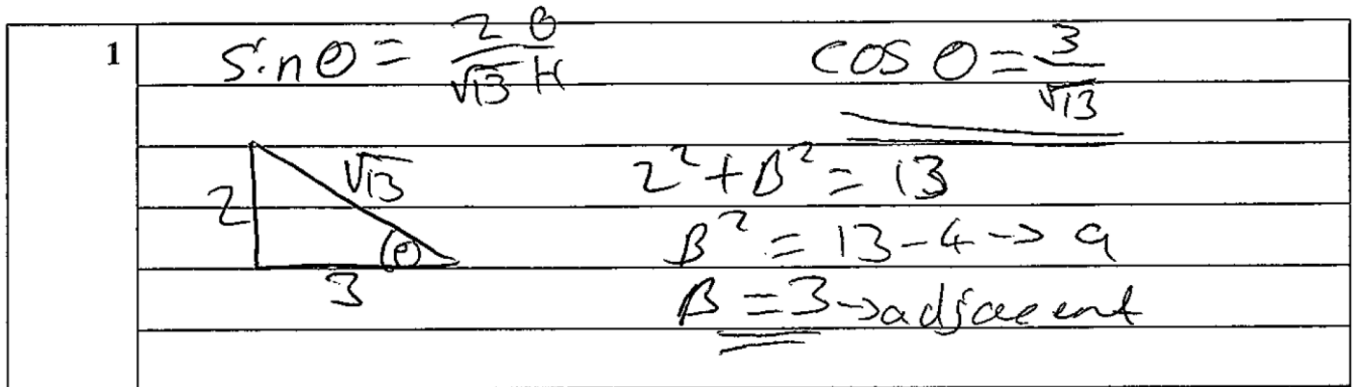 1
sinθ = 2 O / √13 H
cos θ = 3/√13
2
√13
θ
3
2² + B² = 13
B² = 13 - 4 -> 9
B = 3 -> adjacent